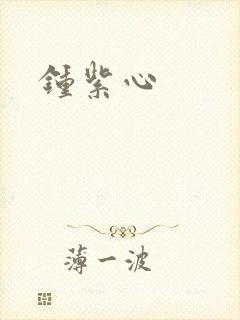 鍾紫心
薄一波